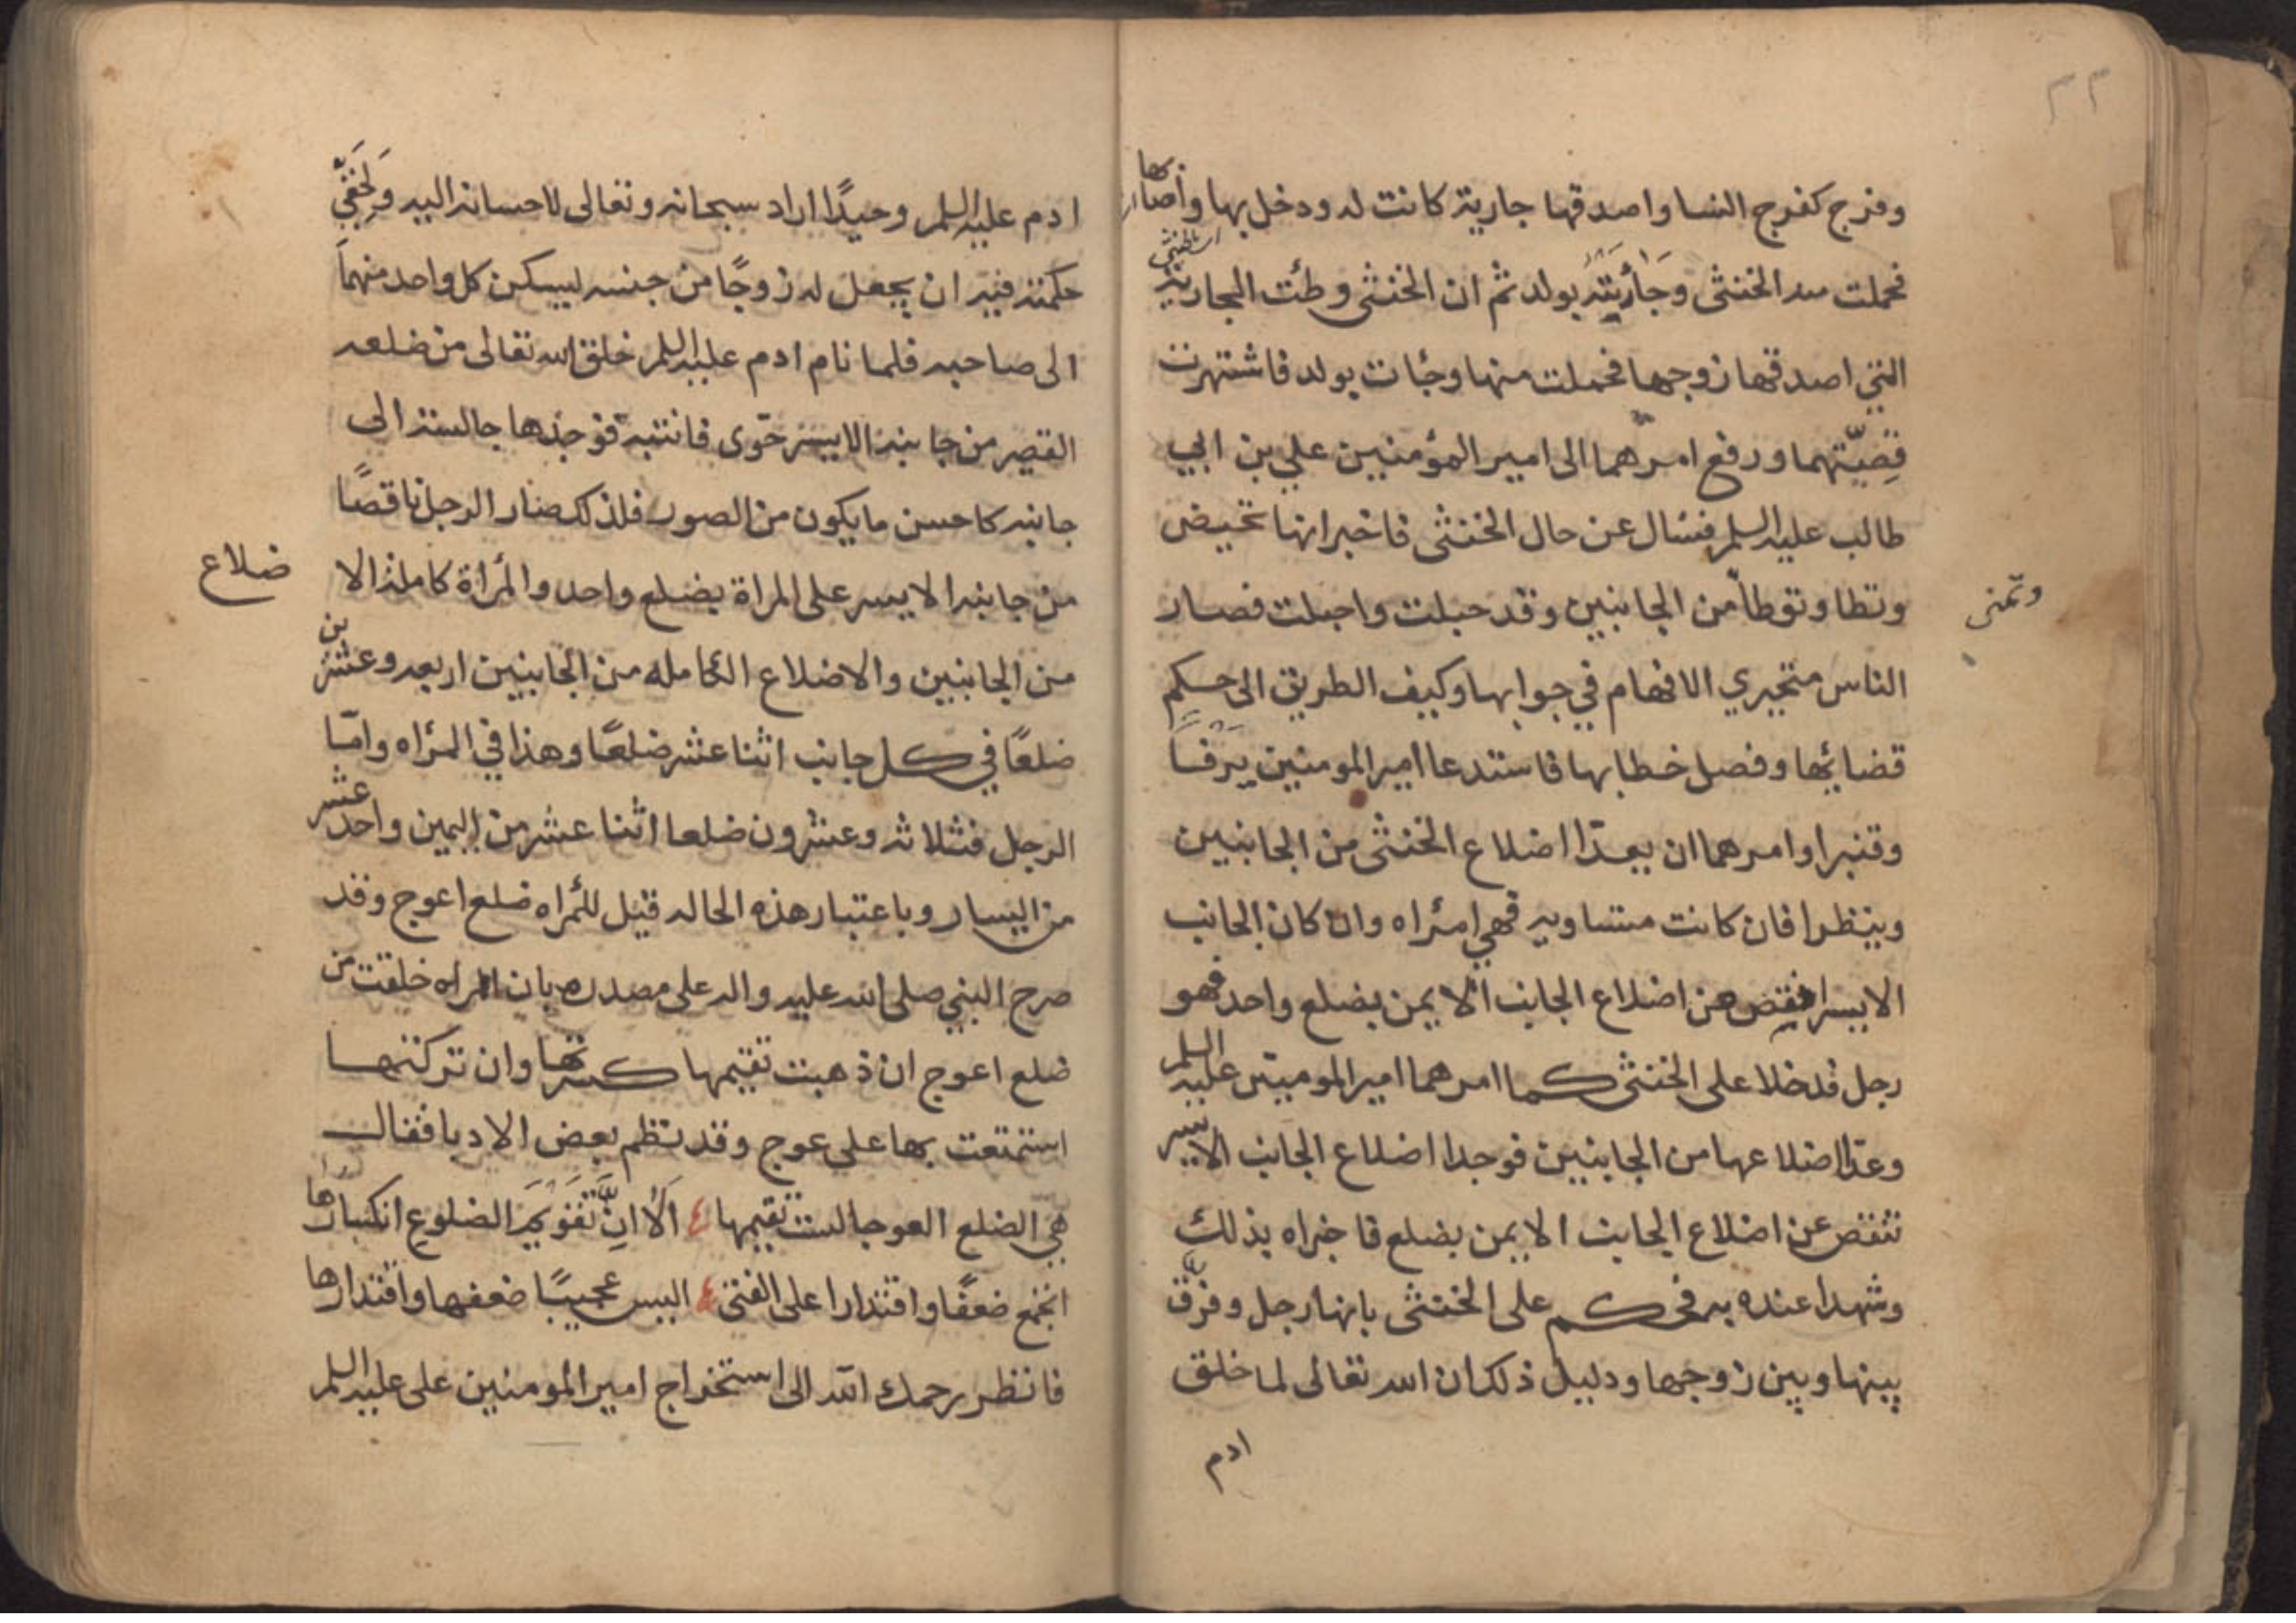 ٢٢
وفرج كفرج النسا واصدقها جارية كانت له ودخل بها واصابها
فحملت منه الخنثى وجائته بولد ثم ان الخنثى وطئت الجارية
التي اصدقها زوجها فحملت منها وجائت بولد فاشتهرت
قصيتهما ورفع امرهما الى امير المؤمنين علي بن ابي
طالب عليه السلم فسال عن حال الخنثى فاخبر انها تحيض
وتطا وتوطا من الجانبين وقد حبلت واحبلت فصار
وتمنى
الناس متحيري الافهام في جوابها وكيف الطريق الى حكم
قضائها وفصل خطابها فاستدعا امير المومنين يرفا
وقنبرا وامرهما ان يعدا اضلاع الخنثى من الجانبين
وينظرا فان كانت متساويه فهي امراه وان كان الجانب
الايسر انقص من اضلاع الجانب الايمن بضلع واحد فهو
رجل فدخلا على الخنثى كما امرهما امير المومنين عليه السلم
وعدا اضلاعها من الجانبين فوجدا اضلاع الجانب الايسر
تنقص عن اضلاع الجانب الايمن بضلع فاخبراه بذلك
وشهدا عنده به فحكم على الخنثى بانها رجل وفرق
بينها وبين زوجها ودليل ذلك ان الله تعالى لما خلق
ادم
ادم عليه السلم وحيدًا اراد سبحانه وتعالى لاحسانه اليه ولخفي
حكمته فيه ان يجعل له زوجًا من جنسه ليسكن كل واحد منهما
الى صاحبه فلما نام ادم عليه السلم خلق الله تعالى من ضلعه
القصير من جانبه الايسر حوى فانتبه فوجدها جالسة الى
جانبه كاحسن ما يكون من الصور فلذلك صار الرجل ناقصًا
من جانبه الايسر على المراة بضلع واحد والمرأة كاملة الا
ضلاع
من الجانبين والاضلاع الكامله من الجانبين اربعه وعشرين
ضلعًا في كل جانب اثنا عشر ضلعًا وهذا في المرأه وامّا
الرجل فثلاثه وعشرون ضلعا اثنا عشر من اليمين واحد عشر
من اليسار وباعتبار هذه الحاله قيل للمرأه ضلع اعوج وقد
صرح النبي صلى الله عليه واله على مصدره بان المراه خلقت من
ضلع اعوج ان ذهبت تقيمها كسرتها وان تركتها
استمتعت بها على عوج وقد نظم بعض الادبا فقال
هي الضلع العوجا لست تقيمها ٤ الا ان تقويم الضلوع انكسارها
اتجمع ضعفًا واقتدارا على الفتى ٤ اليس عجيبًا ضعفها واقتدارها
فانظر رحمك الله الى استخراج امير المومنين على عليه السلم